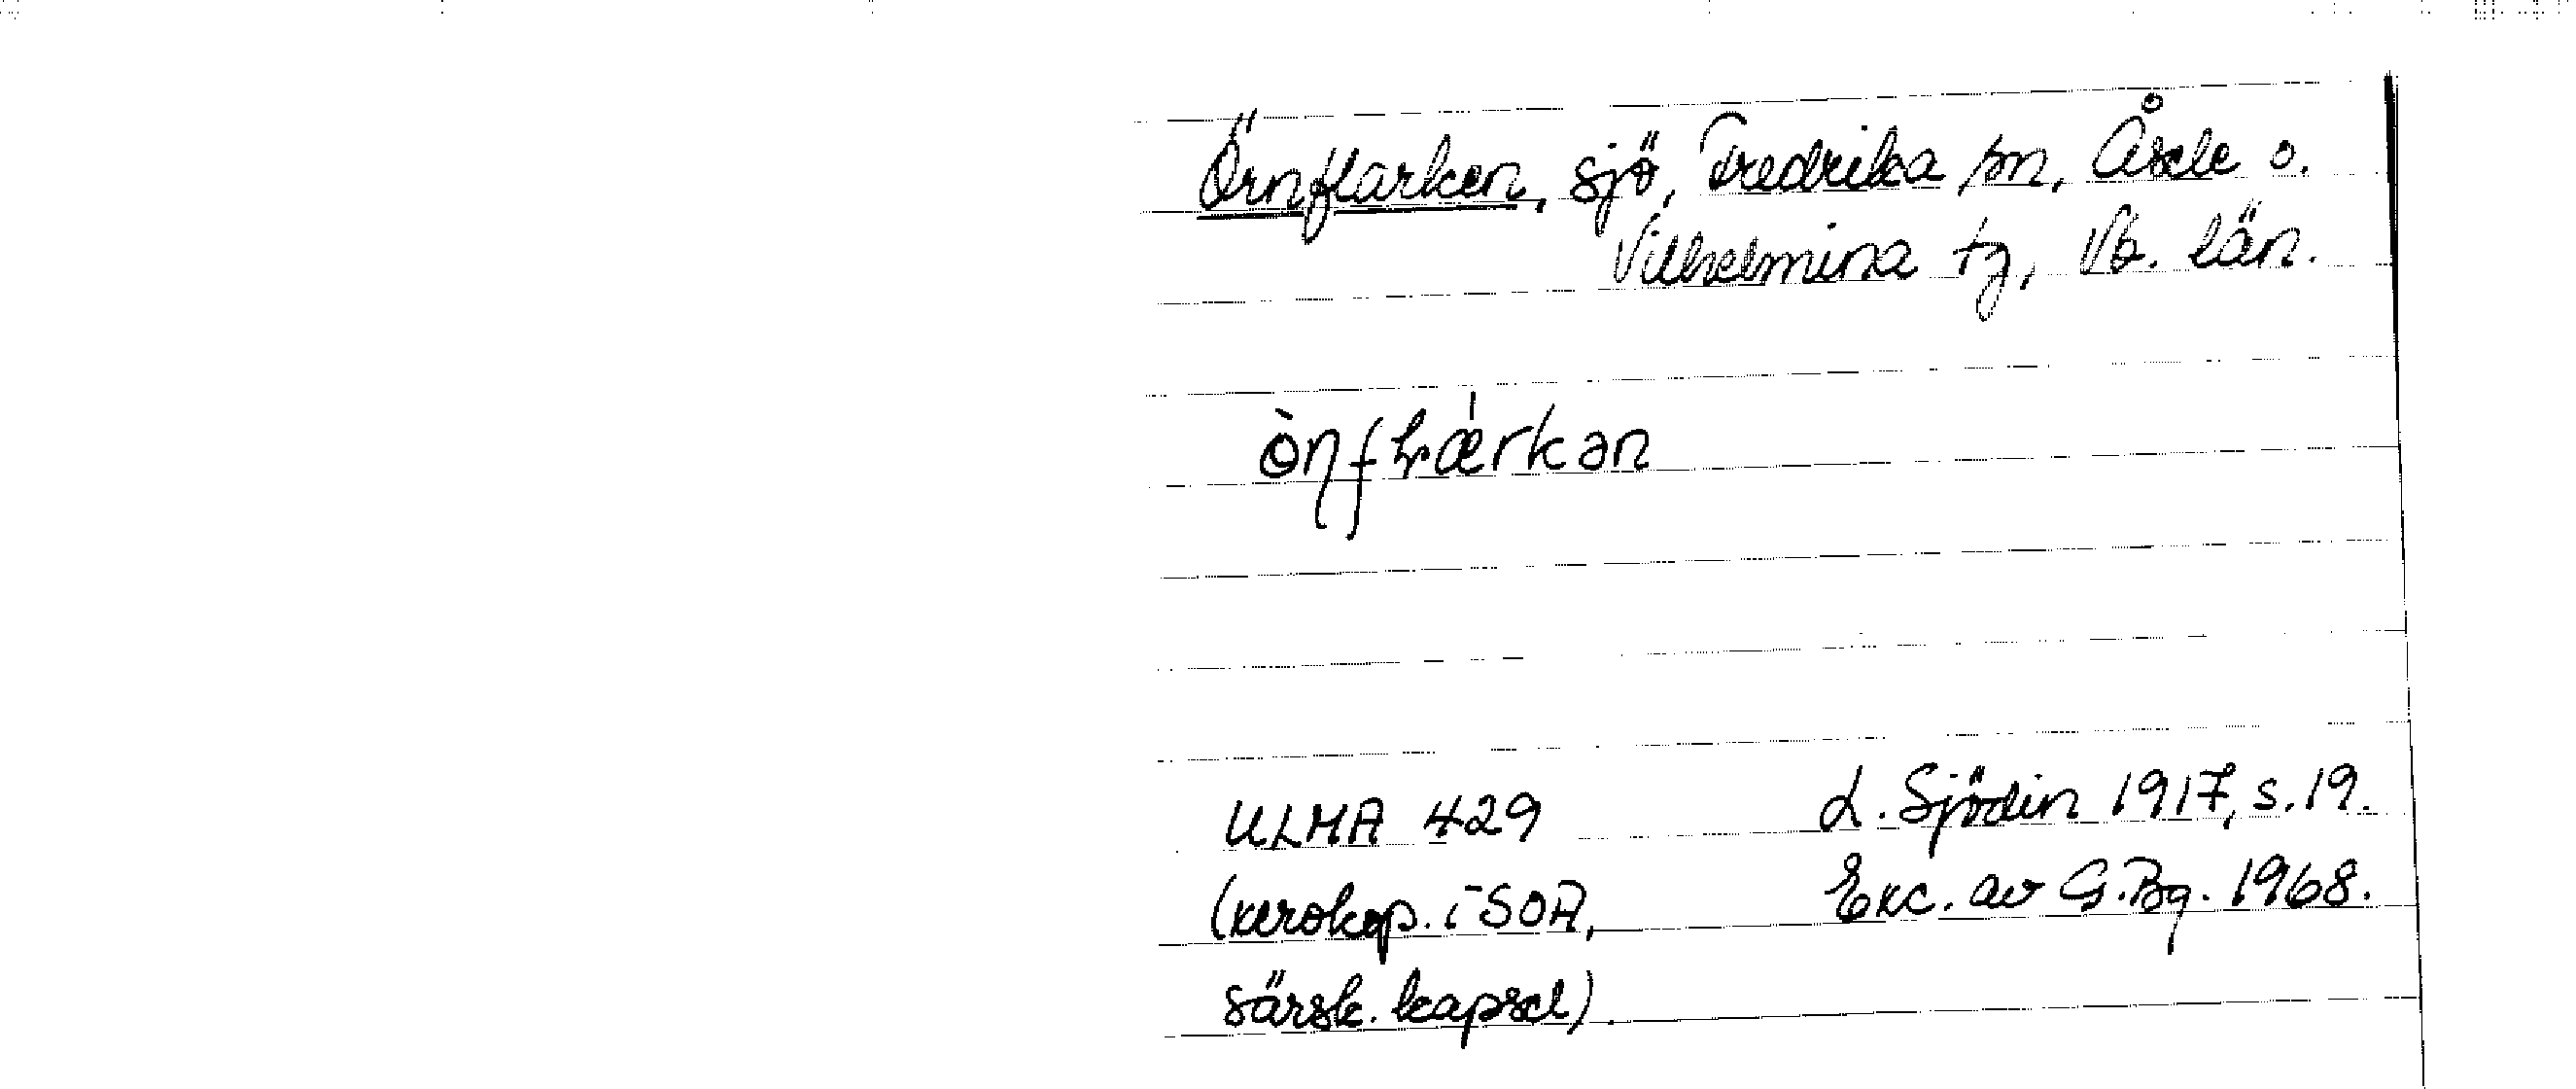 Örnflarken, sjö, Fredrika sn, Åsele o.
Vilhelmina tg, Vb. län.
ULMA 429
L. Sjödin 1917, s. 19.
(xerokop. i SOA,
Exc. av G. Bg. 1968.
särsk. kapsel).